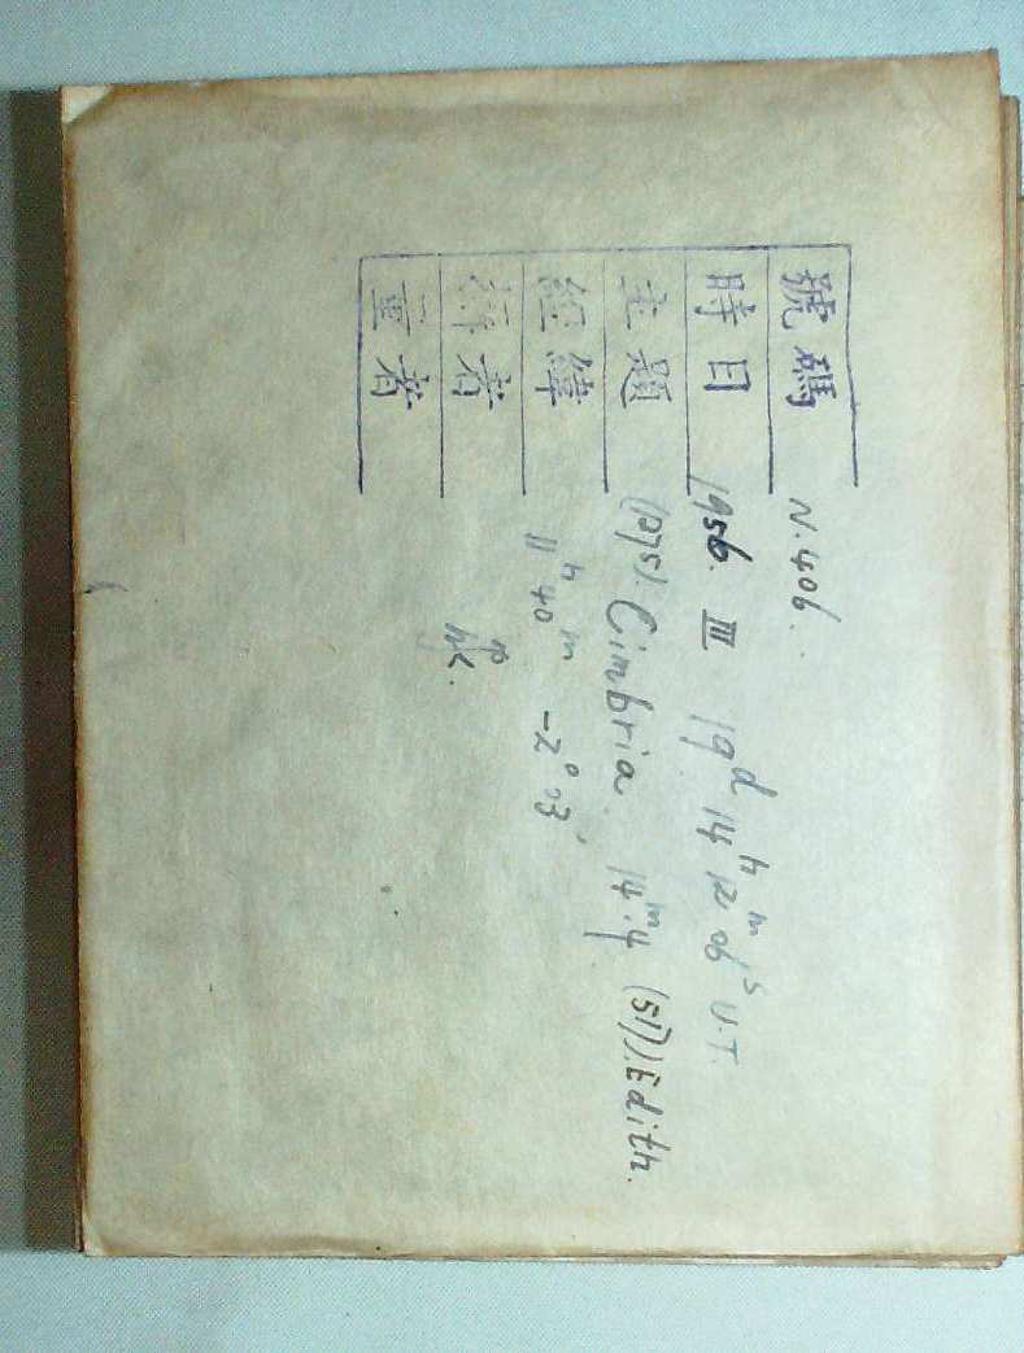 號碼 N. 406.
時日 1956. III 19d 14h 12m 06s U.T.
主題 (1275). Cimbria. 14m.4 (517). Edith.
經緯 11h 40m -2° 03'
者
者